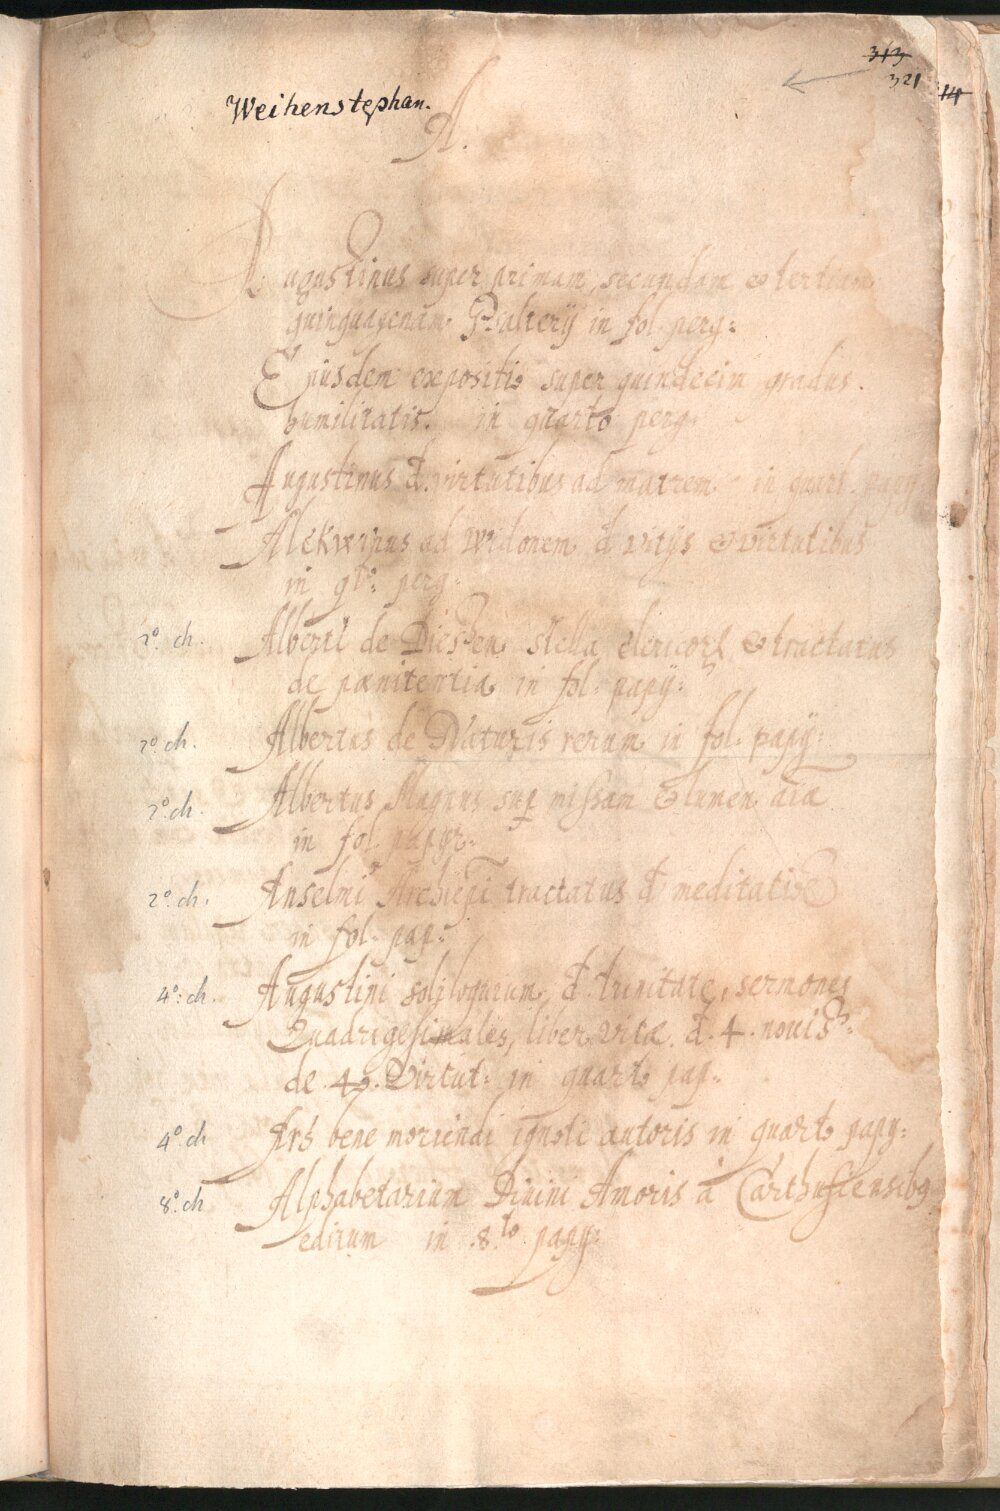 313
321
14
Weihenstephan.
A.
Augustinus super primam, secundam et tertiam
quinquagenam Psalterij in fol. perg:
Ejusdem expositio super quindecim gradus
humilitatis. in quarto perg.
Augustinus đ. virtutibus ad matrem in quart. papy
Alckwinus ad Widonem đ vitijs et virtutibus
in qto: perg.
2º. ch. Alberti de Diessen stella clericorꝝ et tractatus
de pænitentia in fol. papy:
2º. ch. Albertus de Naturis rerum in fol. papy:
2º. ch. Albertus Magnus suꝑ missam et lumen aīæ
in fol. papyr:
2º. ch. Anselmi Archiepī tractatus đ meditatiōe
in fol. pap:
4º: ch. Augustini soliloquium, đ trinitate, sermones
Quadrigesimales, liber vitæ đ. 4. noviss:
de .4. Virtut: in quarto pap:
4º ch Ars bene moriendi ignoti autoris in quarto papy:
8º. ch Alphabetarium Divini Amoris à Carthusiensibꝰ
editum in .8.to papy: